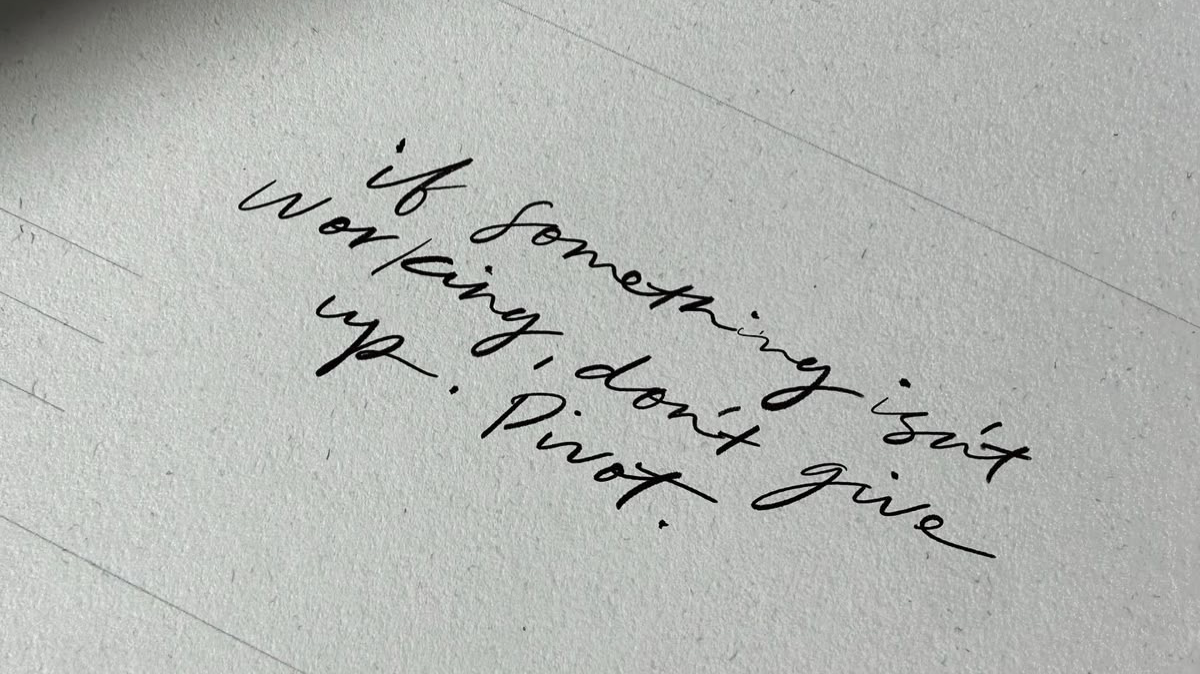 if something isn't
working, don't give
up. Pivot.